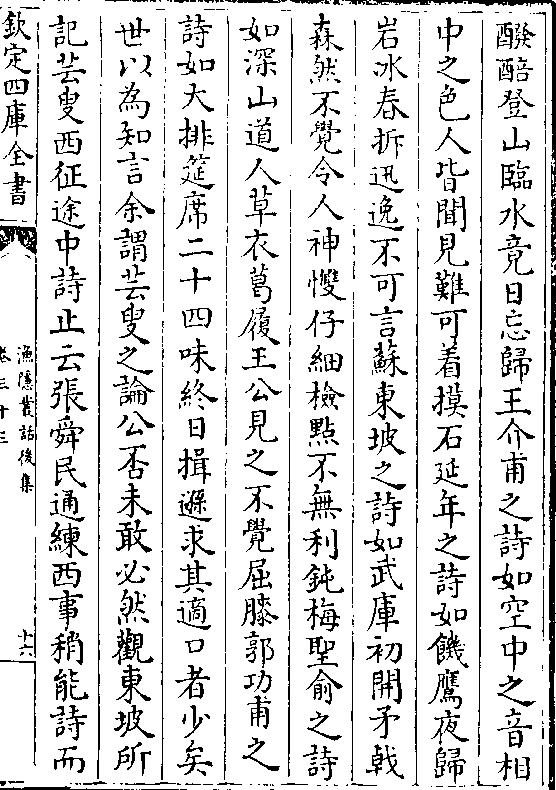 醱醅登山臨水竟日忘歸王介甫之詩如空中之音相
中之色人皆聞見難可着摸石延年之詩如饑鷹夜歸
岩冰春拆迅逸不可言蘇東坡之詩如武庫初開矛戟
森然不覺令人神慢仔細檢點不無利鈍梅聖俞之詩
如深山道人草衣葛履王公見之不覺屈膝郭功甫之
詩如大排筵席二十四味終日揖遜求其適口者少矣
世以為知言余謂芸叟之論公否未敢必然觀東坡所
記芸叟西征途中詩止云張舜民通練西事稍能詩而
欽定四庫全書
漁隱叢話後集
卷三十三
十六